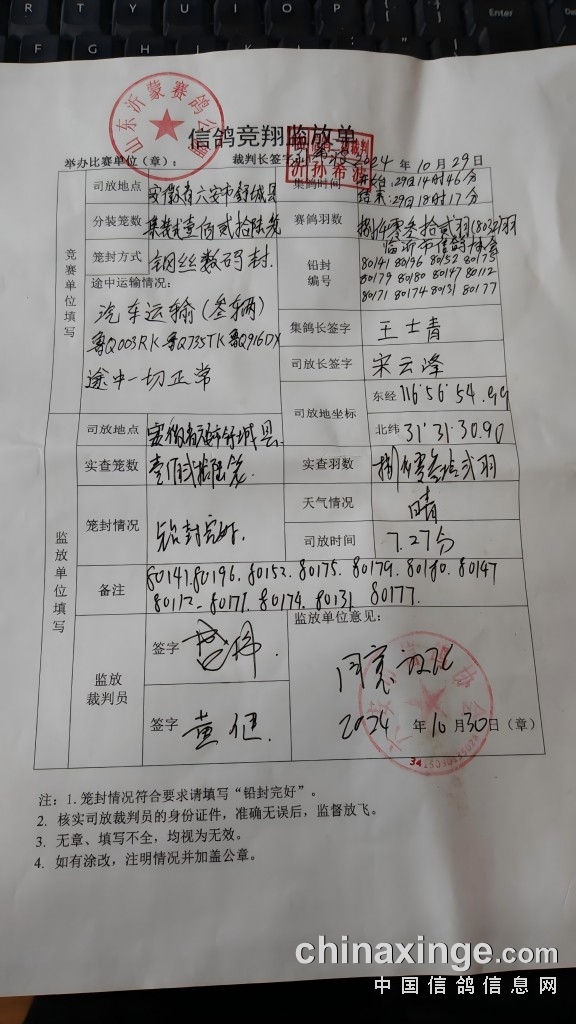 信鸽竞翔监放单
山东沂蒙赛鸽公棚
举办比赛单位（章）： 裁判长签字 2024 年 10 月 29 日
竞赛单位填写
司放地点 安徽省六安市舒城县 集鸽时间 开始：29日14时46分
结束：29日18时17分
分装笼数 集装式壹佰贰拾陆笼 赛鸽羽数 捌仟零叁拾贰羽(8032)羽
笼封方式 钢丝数码封 铅封编号 临沂市信鸽协会
80141 80196 80152 80175
80179 80180 80147 80112
80171 80174 80131 80177
途中运输情况：
汽车运输（叁辆）
鲁Q003RK 鲁Q735TK 鲁Q916DX
途中一切正常
集鸽长签字 王士青
司放长签字 宋云峰
司放地坐标 东经 116°56′54.99
北纬 31°31′30.90
监放单位填写
司放地点 安徽省六安市舒城县
实查笼数 壹佰贰拾陆笼 实查羽数 捌仟零叁拾贰羽
笼封情况 铅封完好 天气情况 晴
司放时间 7.27分
备注 80141. 80196. 80152. 80175. 80179. 80180. 80147
80112 80171 80174. 80131 80177.
监放裁判员 签字
签字 黄健
监放单位意见：
同意放飞
2024 年 10 月 30 日（章）
注：1. 笼封情况符合要求请填写“铅封完好”。
2. 核实司放裁判员的身份证件，准确无误后，监督放飞。
3. 无章、填写不全，均视为无效。
4. 如有涂改，注明情况并加盖公章。
chinaxinge.com
中国信鸽信息网